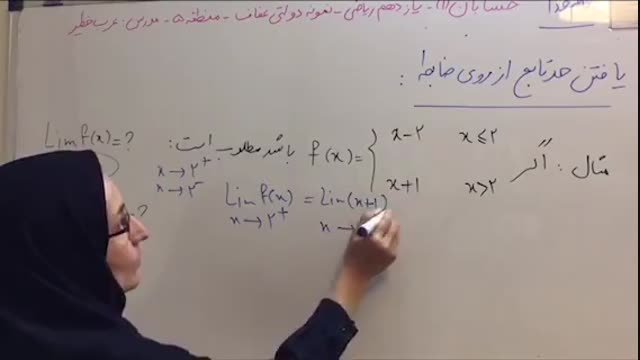 حسابان (۱) - یازدهم ریاضی - نمونه دولتی عفاف - منطقه ۵ - مدرس: عرب خطیر
یافتن حد تابع از روی ضابطه :
مثال : اگر f(x)= { x-۲ x≤۲
x+۱ x>۲
باشد مطلوب است :
Lim f(x)=?
x→۲⁺
x→۲⁻
=?
Lim f(x) = Lim(x+۱)
x→۲⁺ x→